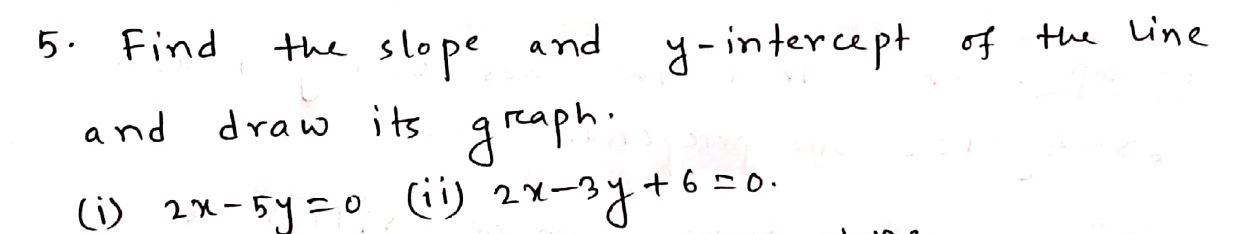 5. Find the slope and y-intercept of the line
and draw its graph.
(i) 2x-5y=0 (ii) 2x-3y+6=0.